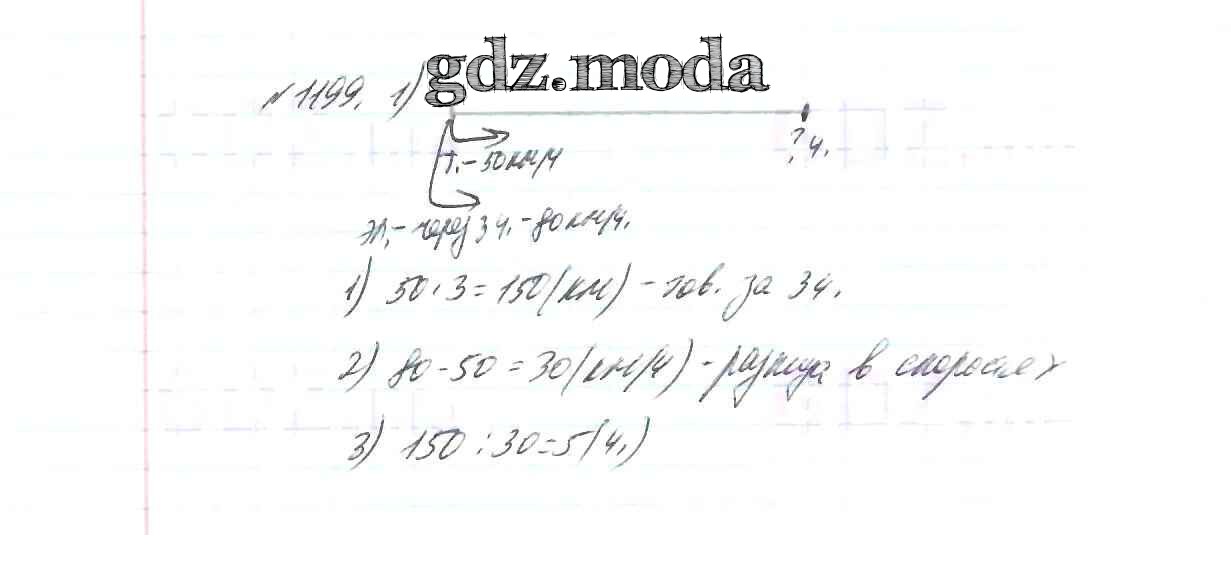 gdz.moda
№1199. 1)
Т. – 50 км/ч
? ч.
эл. – через 3 ч. – 80 км/ч.
1) 50 · 3 = 150 (км) – тов. за 3 ч.
2) 80 – 50 = 30 (км/ч) – разница в скоростях
3) 150 : 30 = 5 (ч.)